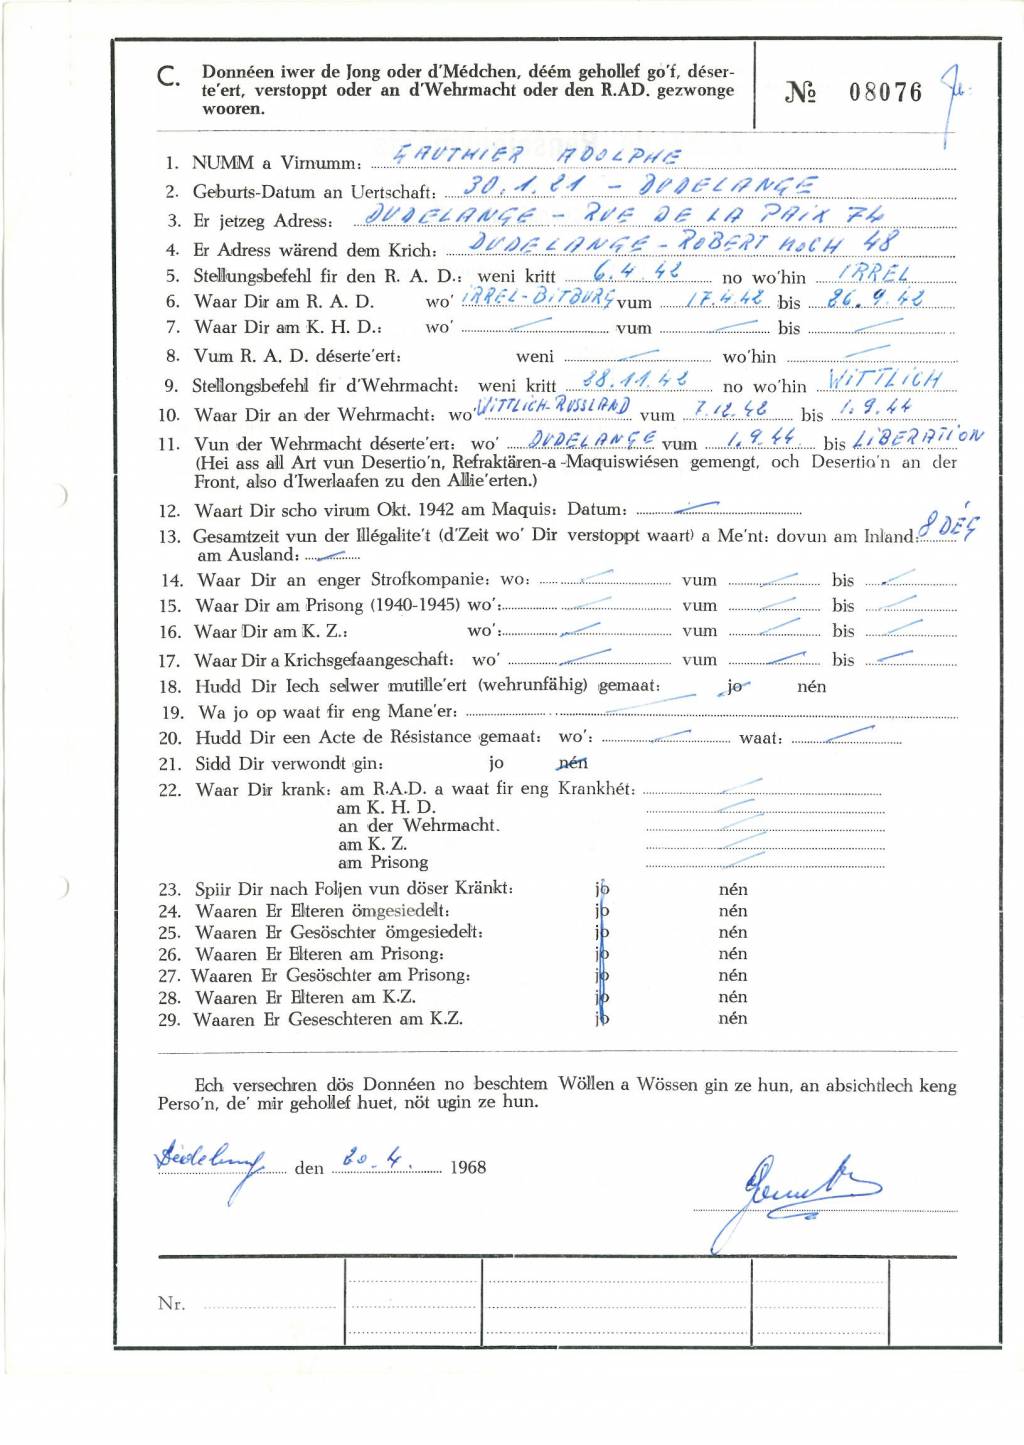 C. Donnéen iwer de Jong oder d'Médchen, déém gehollef go'f, déser-
te'ert, verstoppt oder an d'Wehrmacht oder den R.AD. gezwonge
wooren.
№ 08076
1. NUMM a Virnumm: GAUTHIER ADOLPHE
2. Geburts-Datum an Uertschaft: 30.1.21 - DUDELANGE
3. Er jetzeg Adress: DUDELANGE - RUE DE LA PAIX 74
4. Er Adress wärend dem Krich: DUDELANGE - ROBERT KOCH 48
5. Stellungsbefehl fir den R. A. D.: weni kritt 6.4.42 no wo'hin IRREL
6. Waar Dir am R. A. D. wo' IRREL-BITBURG vum 17.4.42 bis 26.9.42
7. Waar Dir am K. H. D.: wo' vum bis
8. Vum R. A. D. déserte'ert: weni wo'hin
9. Stellongsbefehl fir d'Wehrmacht: weni kritt 28.11.42 no wo'hin WITTLICH
10. Waar Dir an der Wehrmacht: wo' WITTLICH-RUSSLAND vum 7.12.42 bis 1.9.44
11. Vun der Wehrmacht déserte'ert: wo' DUDELANGE vum 1.9.44 bis LIBERATION
(Hei ass all Art vun Desertio'n, Refraktären-a -Maquiswiésen gemengt, och Desertio'n an der
Front, also d'Iwerlaafen zu den Allie'erten.)
12. Waart Dir scho virum Okt. 1942 am Maquis: Datum:
13. Gesamtzeit vun der Illégalite't (d'Zeit wo' Dir verstoppt waart) a Me'nt: dovun am Inland: 8 DÉG
am Ausland:
14. Waar Dir an enger Strofkompanie: wo: vum bis
15. Waar Dir am Prisong (1940-1945) wo': vum bis
16. Waar Dir am K. Z.: wo': vum bis
17. Waar Dir a Krichsgefaangeschaft: wo' vum bis
18. Hudd Dir Iech selwer mutille'ert (wehrunfähig) gemaat: jo nén
19. Wa jo op waat fir eng Mane'er:
20. Hudd Dir een Acte de Résistance gemaat: wo': waat:
21. Sidd Dir verwondt gin: jo nén
22. Waar Dir krank: am R.A.D. a waat fir eng Krankhét:
am K. H. D.
an der Wehrmacht.
am K. Z.
am Prisong
23. Spiir Dir nach Foljen vun döser Kränkt: jo nén
24. Waaren Er Elteren ömgesiedelt: jo nén
25. Waaren Er Gesöschter ömgesiedelt: jo nén
26. Waaren Er Elteren am Prisong: jo nén
27. Waaren Er Gesöschter am Prisong: jo nén
28. Waaren Er Elteren am K.Z. jo nén
29. Waaren Er Geseschteren am K.Z. jo nén
Ech versechren dös Donnéen no beschtem Wöllen a Wössen gin ze hun, an absichtlech keng
Perso'n, de' mir gehollef huet, nöt ugin ze hun.
den 20.4. 1968
Nr.